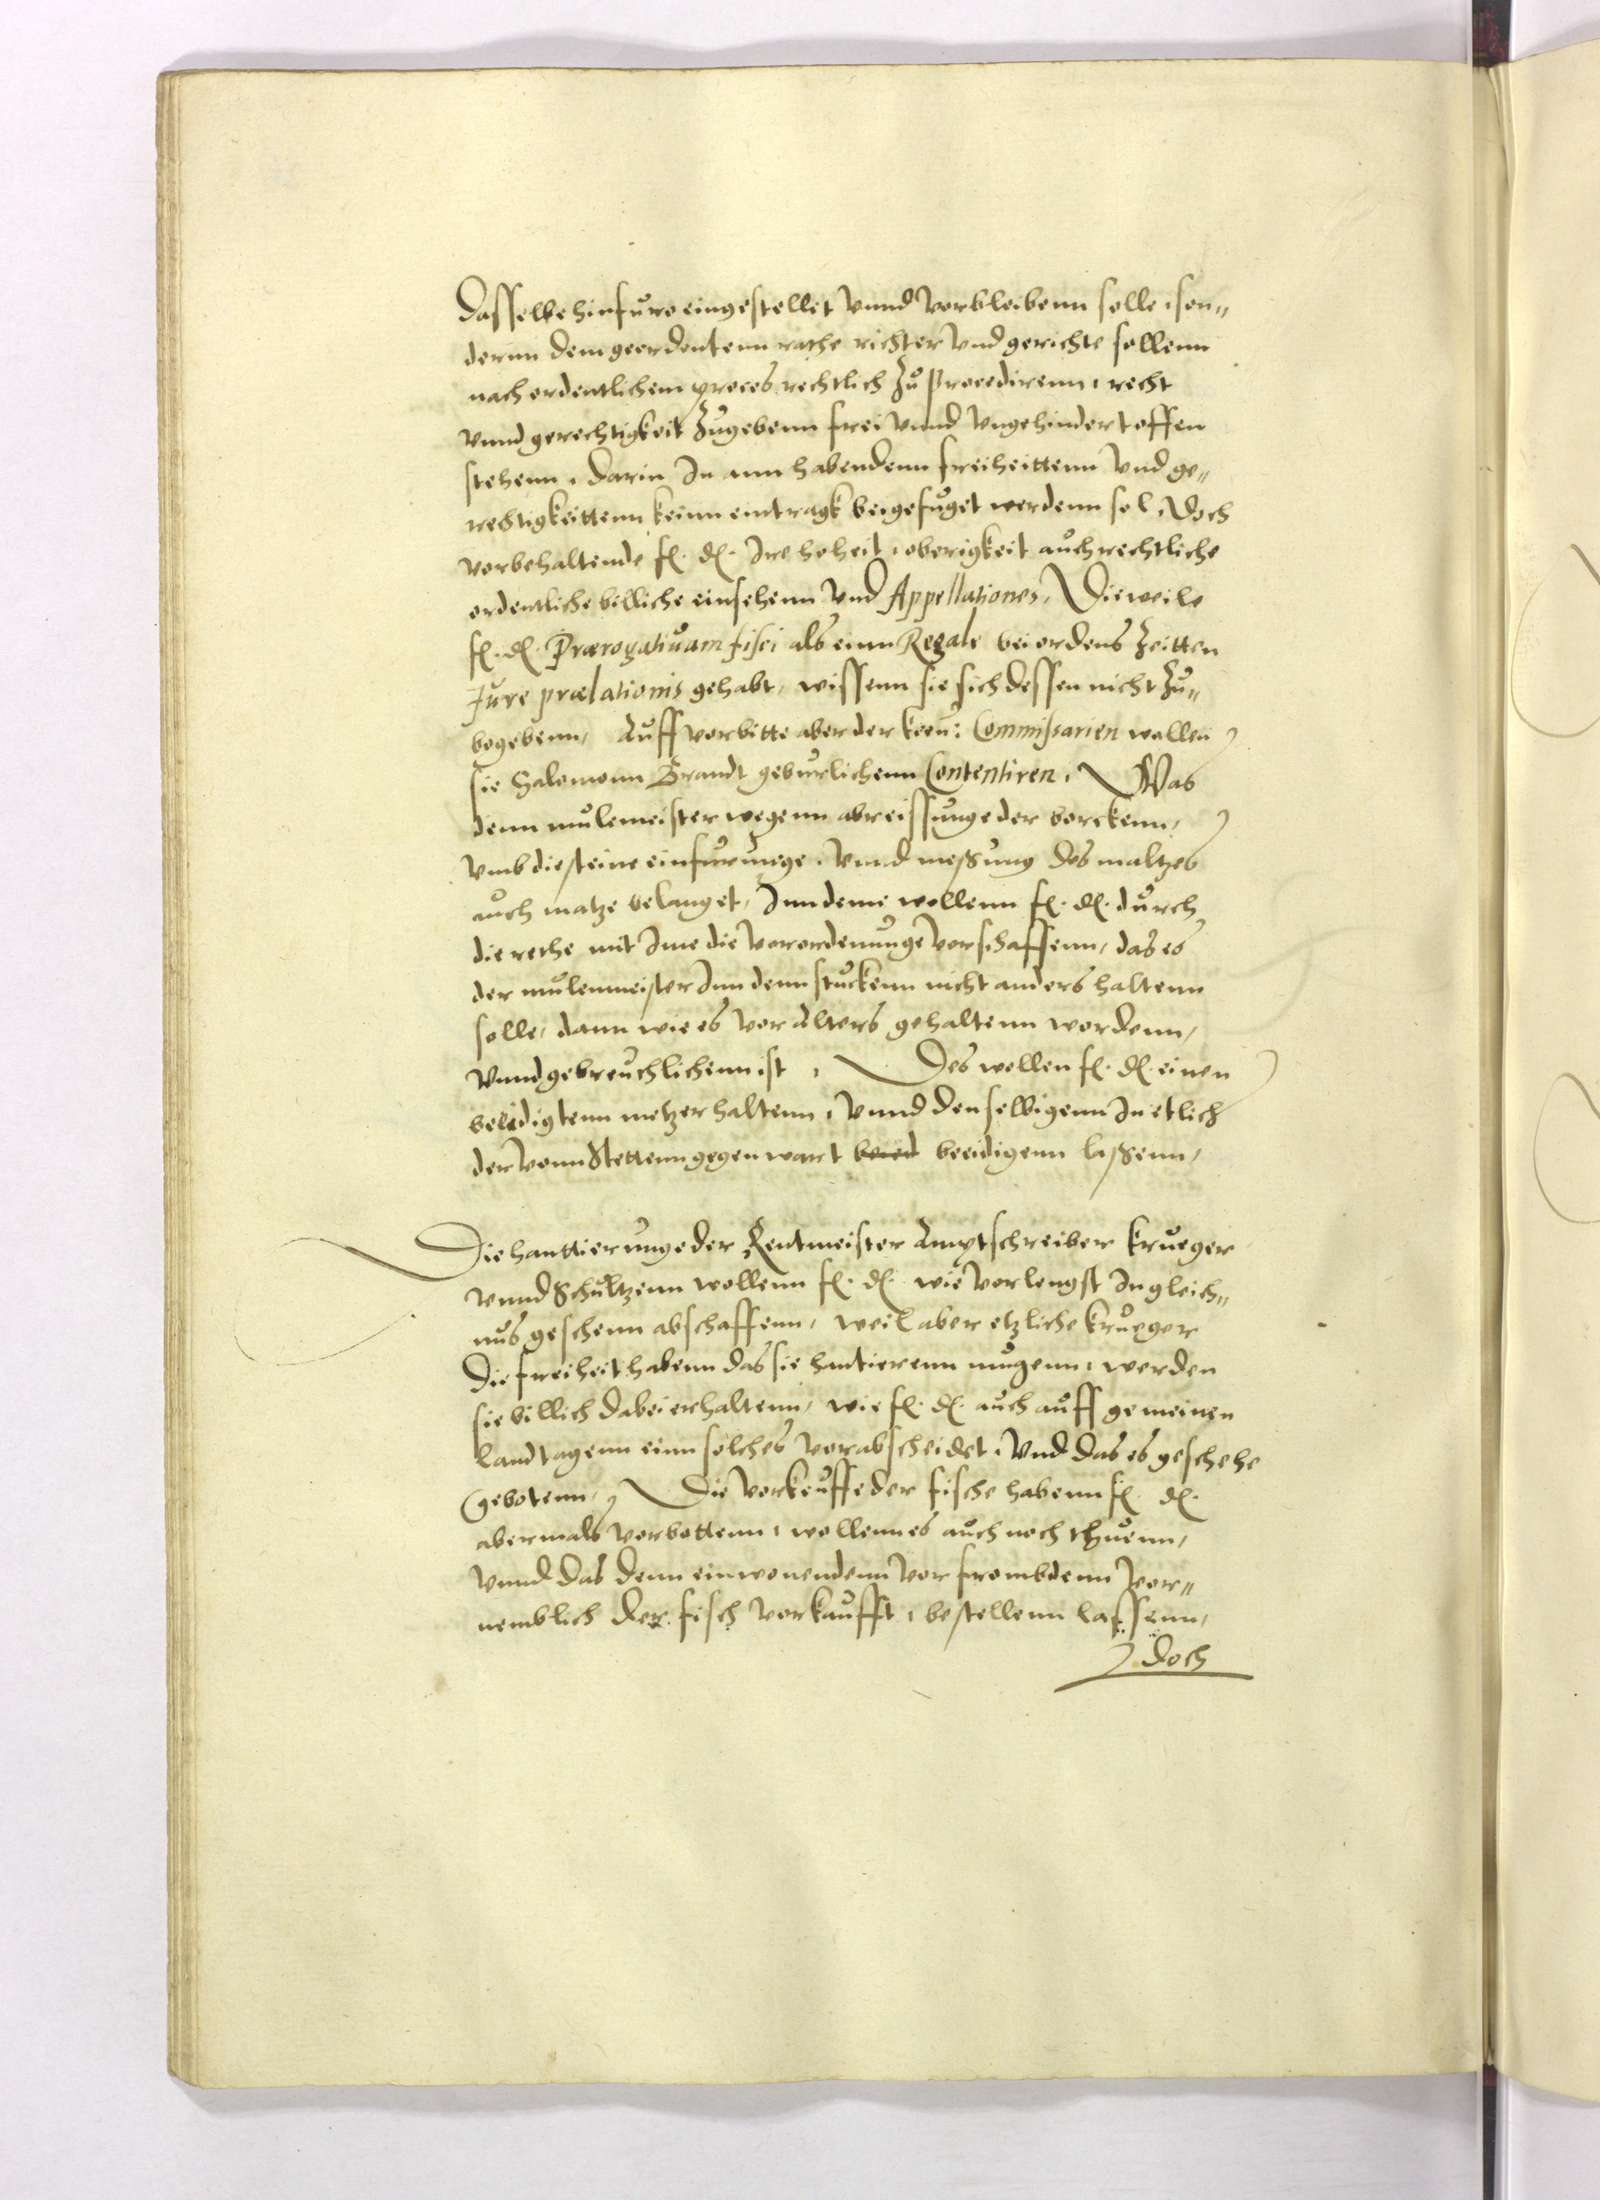 Dasselbe hinfuro eingestellet vnnd vorbleibenn solle, son„
dernn dem geordentenn rathe richter vnd gerichte sollenn
nach ordentlichem proces rechtlich zu procedirenn, recht
vnnd gerechtigkeit zugebenn frei vnnd vngehindert offen
stehenn, darin In ann habendenn freiheittenn vnd ge„
rechtigkeittenn keinn eintragk beigefuget werdenn sol, Doch
vorbehaltende f. d. Ire hoheit, oberigkeit auch rechtliche
ordentliche billiche einsehenn vnd Appellationes, Dieweile
f. d. Prærogatiuam fisci als einn Regale bei ordens Zeitten
Jure prælationis gehabt, wissenn sie sich dessen nicht zu„
begebenn, Auff vorbitte aber der kon: Commissarien wollen
sie Salomonn Brandt geburlichenn Contentiren, Was
denn mulemeister wegenn abreissunge der borckenn,
vmb die steine einfurunge, vnnd messung des maltzes
auch matze belanget, Inn deme wollenn f. d. durch
die rethe mit Ime die vorordenunge vorschaffenn, das es
der mulenmeister Inn denn stuckenn nicht anders haltenn
solle, dann wie es vor alters gehaltenn wordenn,
vnnd gebreuchlichenn ist, Des wollen f. d. einen
beeidigtenn metzer haltenn, vnnd denselbigenn In etlich
der vonn Stettenn gegenwart beeidigenn lassenn,
Die hanttierunge der Rentmeister Amptschreiber krueger
vnnd Schultzenn wollenn f. d. wie vorlengst In gleich„
nus geschenn abschaffenn, weil aber etzliche krueger
die freiheit habenn das sie hantierenn mugenn, werden
sie billich dabei erhaltenn, wie f. d. auch auff gemeinen
landtagenn einn solches vorabscheidet, vnd das es geschehe
gebotenn, Die vorkeuffe der fische habenn f. d.
abermals vorbottenn, wollenn es auch noch thuenn,
vnnd das denn einwonendenn vor frombdenn vor„
nemblich der fisch vorkaufft, bestellenn lassenn,
Doch